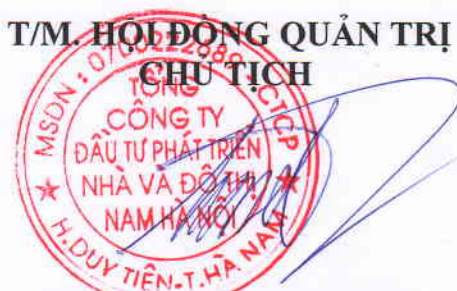 T/M. HỘI ĐỒNG QUẢN TRỊ
CHỦ TỊCH
TỔNG
CÔNG TY
ĐẦU TƯ PHÁT TRIỂN
NHÀ VÀ ĐÔ THỊ
NAM HÀ NỘI
H.DUY TIÊN-T.HÀ NAM